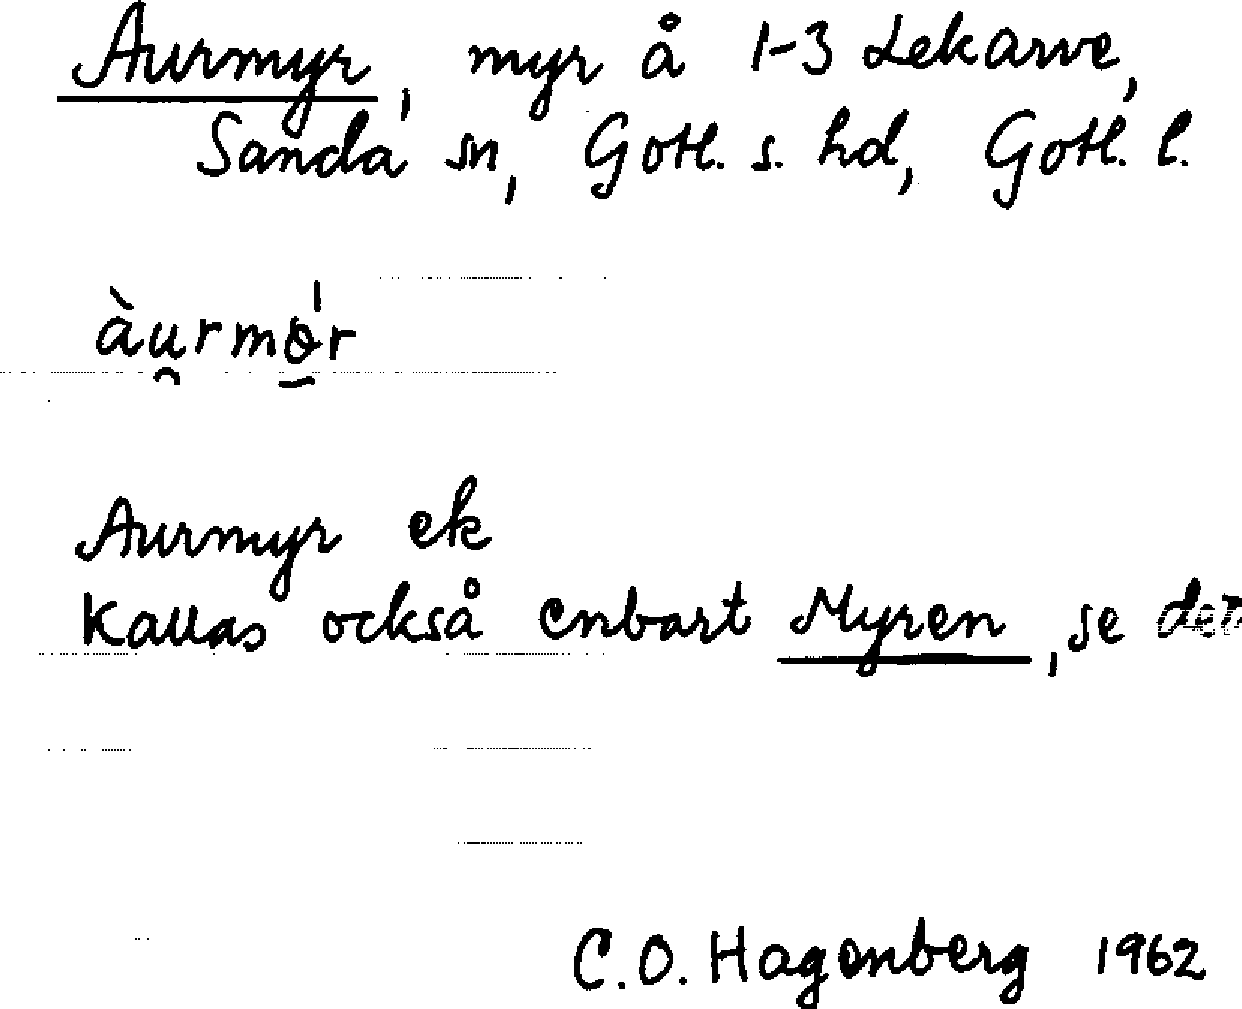 Aurmyr, myr å 1-3 Lekarve,
Sanda sn, Gotl. s. hd, Gotl. l.
àu̯rmǿ̠r
Aurmyr ek
Kallas också enbart Myren, se det
C.O. Hagenberg 1962